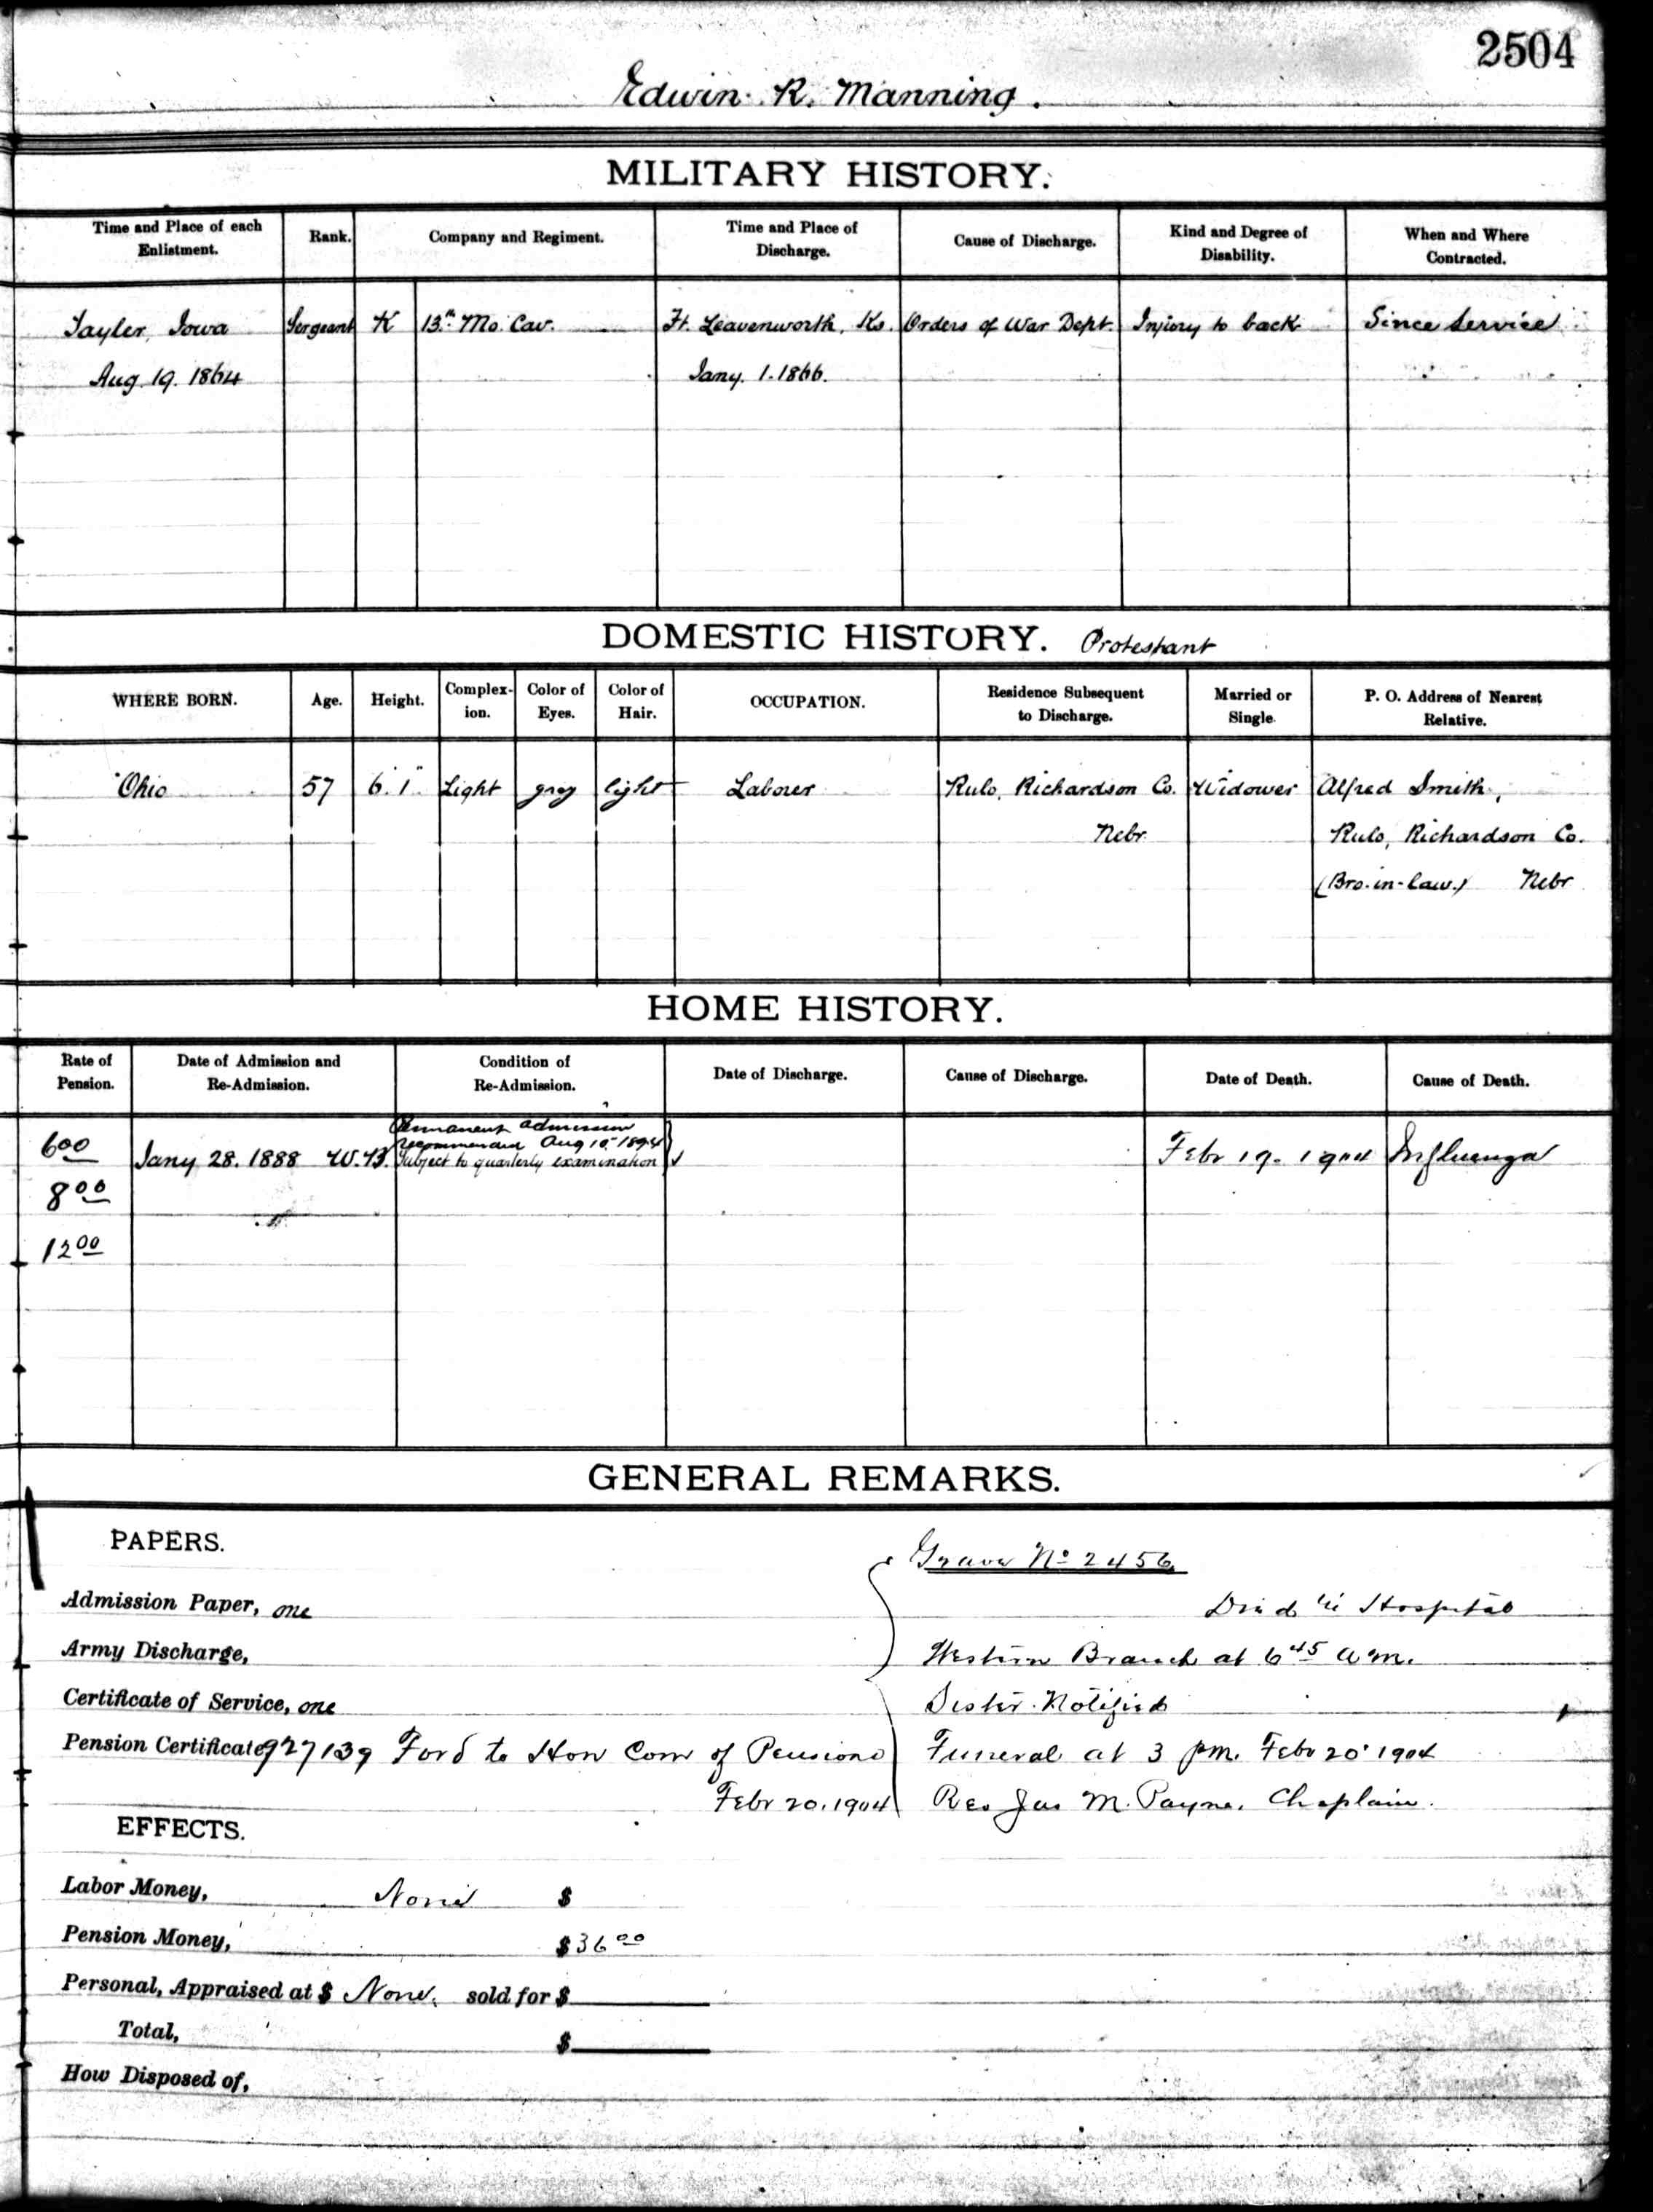 2504
Edwin R. Manning.
MILITARY HISTORY.
Time and Place of each Enlistment.
Rank.
Company and Regiment.
Time and Place of Discharge.
Cause of Discharge.
Kind and Degree of Disability.
When and Where Contracted.
Tayler, Iowa Sergeant K 13th Mo. Cav. Ft. Leavenworth, Ks. Orders of War Dept. Injury to back Since Service
Aug. 19. 1864 Jany. 1. 1866.
DOMESTIC HISTORY. Protestant
WHERE BORN.
Age.
Height.
Complexion.
Color of Eyes.
Color of Hair.
OCCUPATION.
Residence Subsequent to Discharge.
Married or Single.
P. O. Address of Nearest Relative.
Ohio 57 6' 1" Light gray light Laborer Rulo, Richardson Co. Widower Alfred Smith,
Nebr. Rulo, Richardson Co.
(Bro.-in-law.) Nebr
HOME HISTORY.
Rate of Pension.
Date of Admission and Re-Admission.
Condition of Re-Admission.
Date of Discharge.
Cause of Discharge.
Date of Death.
Cause of Death.
Permanent admission
recommended Aug 10. 1894
6 00 Jany 28. 1888 W.B. Subject to quarterly examination Febr 19. 1904 Influenza
8 00
12 00
GENERAL REMARKS.
PAPERS.
Grave No 2456
Admission Paper, one Died in Hospital
Army Discharge, Western Branch at 6 45 a.m.
Certificate of Service, one Sister Notified
Pension Certificate 927139 Ford to Hon Com of Pensions Funeral at 3 pm. Febr 20 1904
Febr 20. 1904 Rev Jas M. Payne, Chaplain.
EFFECTS.
Labor Money, None $
Pension Money, $36 00
Personal, Appraised at $ None. sold for $
Total, $
How Disposed of,